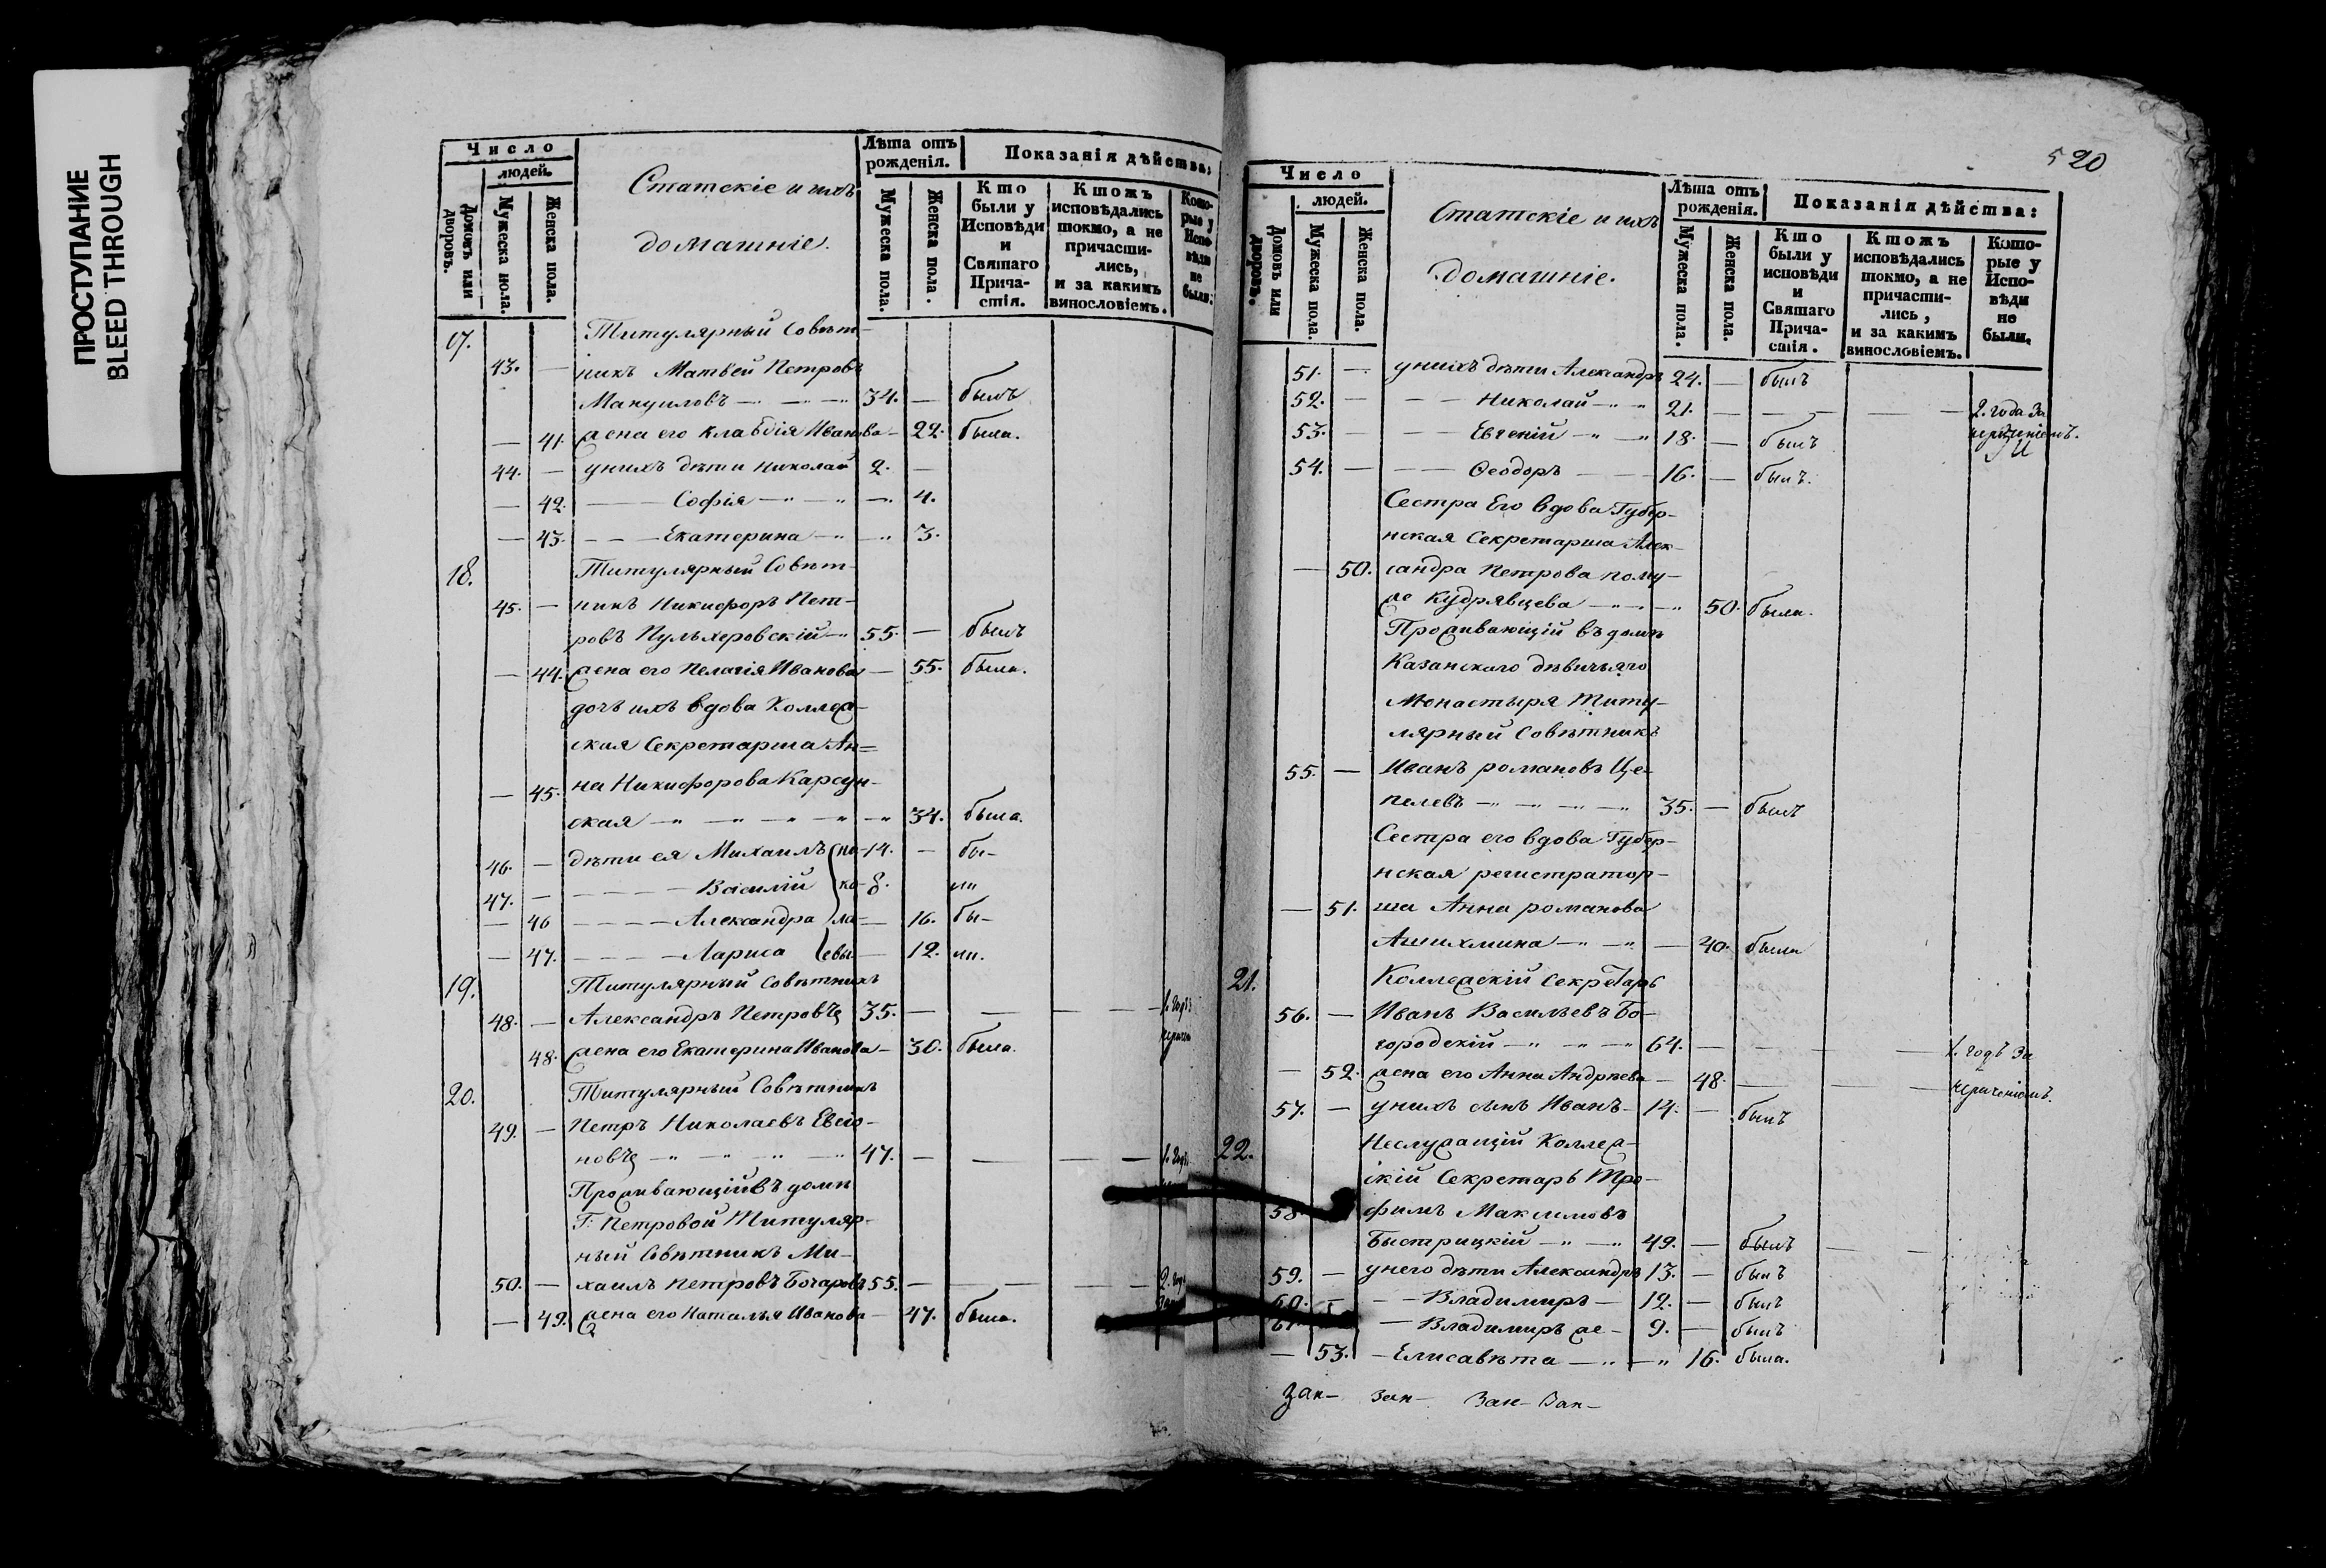 ПРОСТУПАНИЕ
BLEED THROUGH
Число
людей.
Домовъ или дворовъ.
Мужеска пола.
Женска пола.
Статскіе и ихъ
домашніе.
Лѣта отъ рожденія.
Мужеска пола.
Женска пола.
Показанія дѣйства:
Кто были у Исповѣди и Святаго Причастія.
Ктожъ исповѣдались токмо, а не причастились, и за какимъ винословіемъ.
Которые у Исповѣди не были:
17. Титулярный Совѣт-
43. — никъ Матвей Петровъ
Мануиловъ — 34. — былъ
— 41. жена его Клавдія Иванова — 22. была.
44. — у нихъ дѣти Николай 2. —
— 42. — Софія — 4.
— 43. — Екатерина — 3.
18. Титулярный Совѣт-
45. — никъ Никифоръ Пет-
ровъ Пульхеровскій 55. — былъ
— 44. жена его Пелагія Иванова — 55. была.
дочь ихъ вдова Коллеж-
ская Секретарша Ан=
— 45. на Никифорова Карсун-
ская — 34. была.
46. — дѣти ея Михаилъ (но- 14. — бы-
47. — Василій ко- 8. ли
— 46 — Александра ла= — 16. бы-
— 47. — Лариса евы — 12. ли.
19. Титулярный Совѣтникъ
48. — Александръ Петровъ 35. — — — — 1. годъ
48. жена его Екатерина Иванова — 30. была.
20. Титулярный Совѣтникъ
49. — Петръ Николаевъ Евсю-
новъ — 47. — — — — 1. годъ
Проживающій въ домѣ
Г: Петровой Титуляр-
ный Совѣтникъ Ми-
50. — хаилъ Петровъ Бочаровъ 55. — — — — 2. год
— 49. жена его Наталья Иванова — 47. была.
520
Число
людей.
Домовъ или дворовъ.
Мужеска пола.
Женска пола.
Статскіе и ихъ
домашніе.
Лѣта отъ рожденія.
Мужеска пола.
Женска пола.
Показанія дѣйства:
Кто были у исповѣди и Святаго Причастія.
Ктожъ исповѣдались токмо, а не причастились, и за какимъ винословіемъ.
Которые у Исповѣди не были.
51. — у нихъ дѣти Александръ 24. — былъ
52. — — Николай 21. — — — — 2. года за
53. — — Евгеній 18. — былъ
54. — — Ѳеодоръ — 16. — былъ.
Сестра Его вдова Губер-
нская Секретарша Алек-
— 50. сандра Петрова по му-
же Кудрявцева — 50. была.
Проживающій въ домѣ
Казанскаго дѣвичьяго
Монастыря Титу-
лярный Совѣтникъ
55. — Иванъ романовъ Це-
пелевъ — 35. — былъ
Сестра его вдова Губер-
нская регистратор-
— 51. ша Анна романова
Ашихмина — 40. была
21. Коллежскій Секретарь
56. — Иванъ Васильевъ Бо-
городскій — 64. — — — — 1. годъ за
— 52. жена его Анна Андрѣева — 48. — — — нераченіемъ.
57. — у нихъ сынъ Иванъ — 14. — былъ
22. Неслужащій Коллеж-
скій Секретарь Тро-
58. фимъ Максимовъ
Быстрицкій — 49. — былъ — —
59. — у него дѣти Александръ 13. — былъ
60. — — Владимиръ — 12. — былъ
61. — Владимиръ же — 9. — былъ
— 53. — Елисавѣта — 16. была.
Зак— Зак— Зак— Зак—